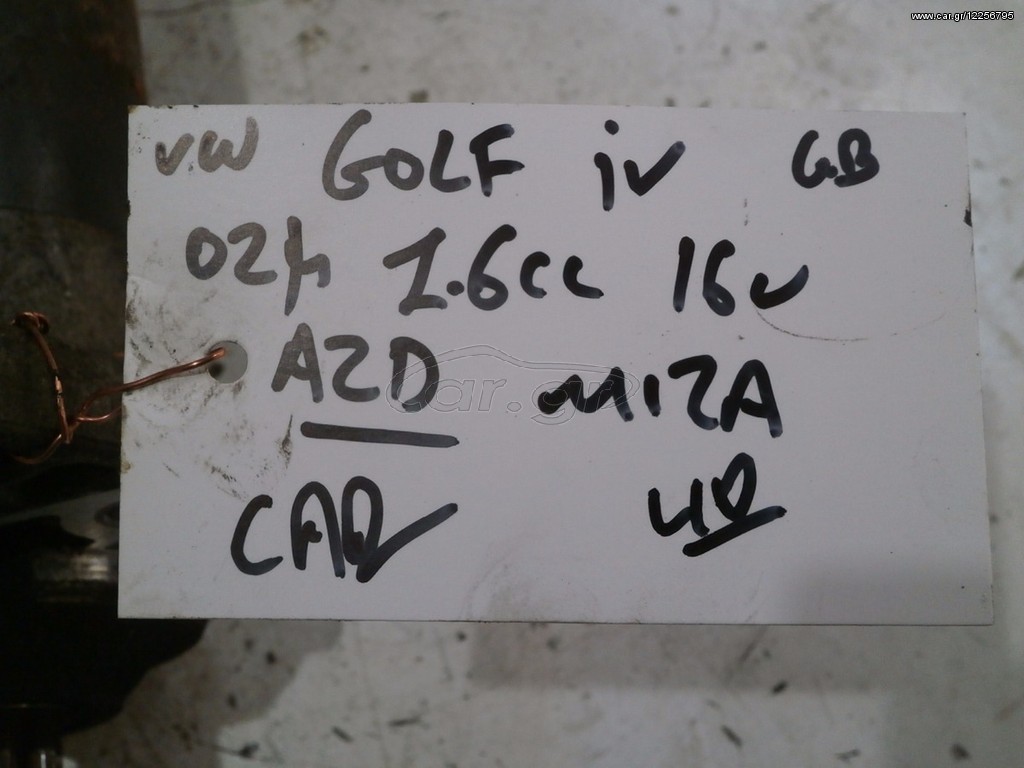 www.car.gr/12256795
VW GOLF iv GB
02μ 1.6cc 16v
AZD MIZA
car.gr
CAR 40